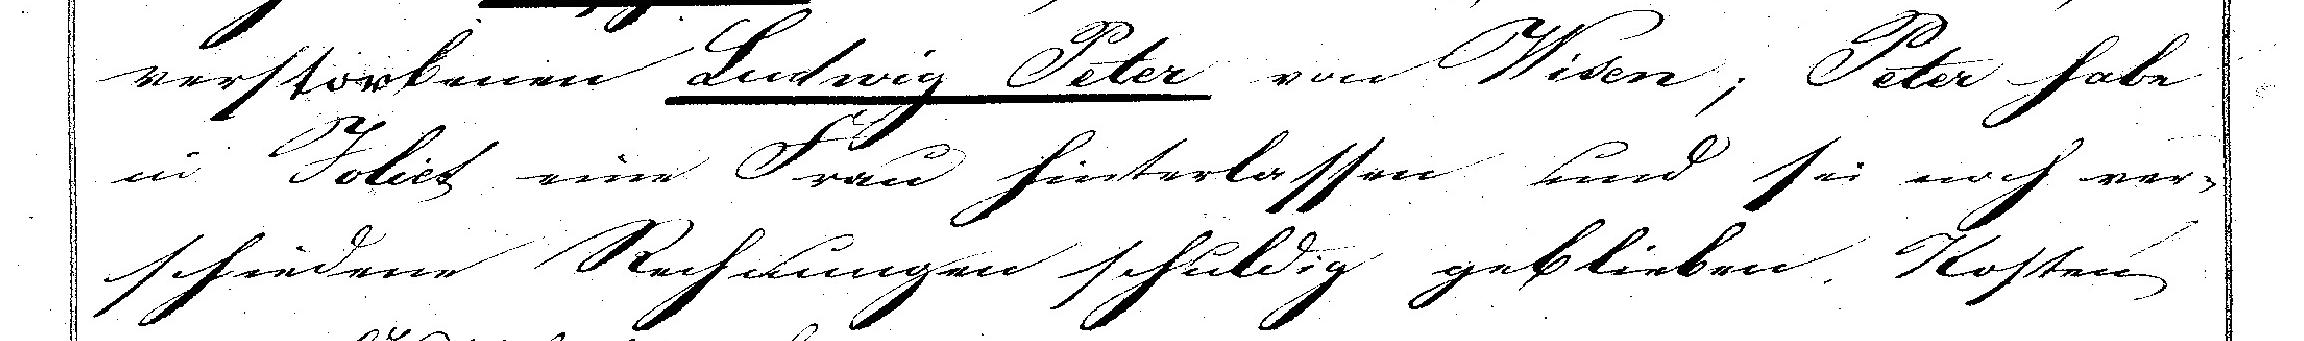 verstorbenen Ludwig Peter von Wisen; Peter habe
in Joliet eine Frau hinterlassen und sei noch ver-
schiedene Rechnungen schuldig geblieben. Kosten